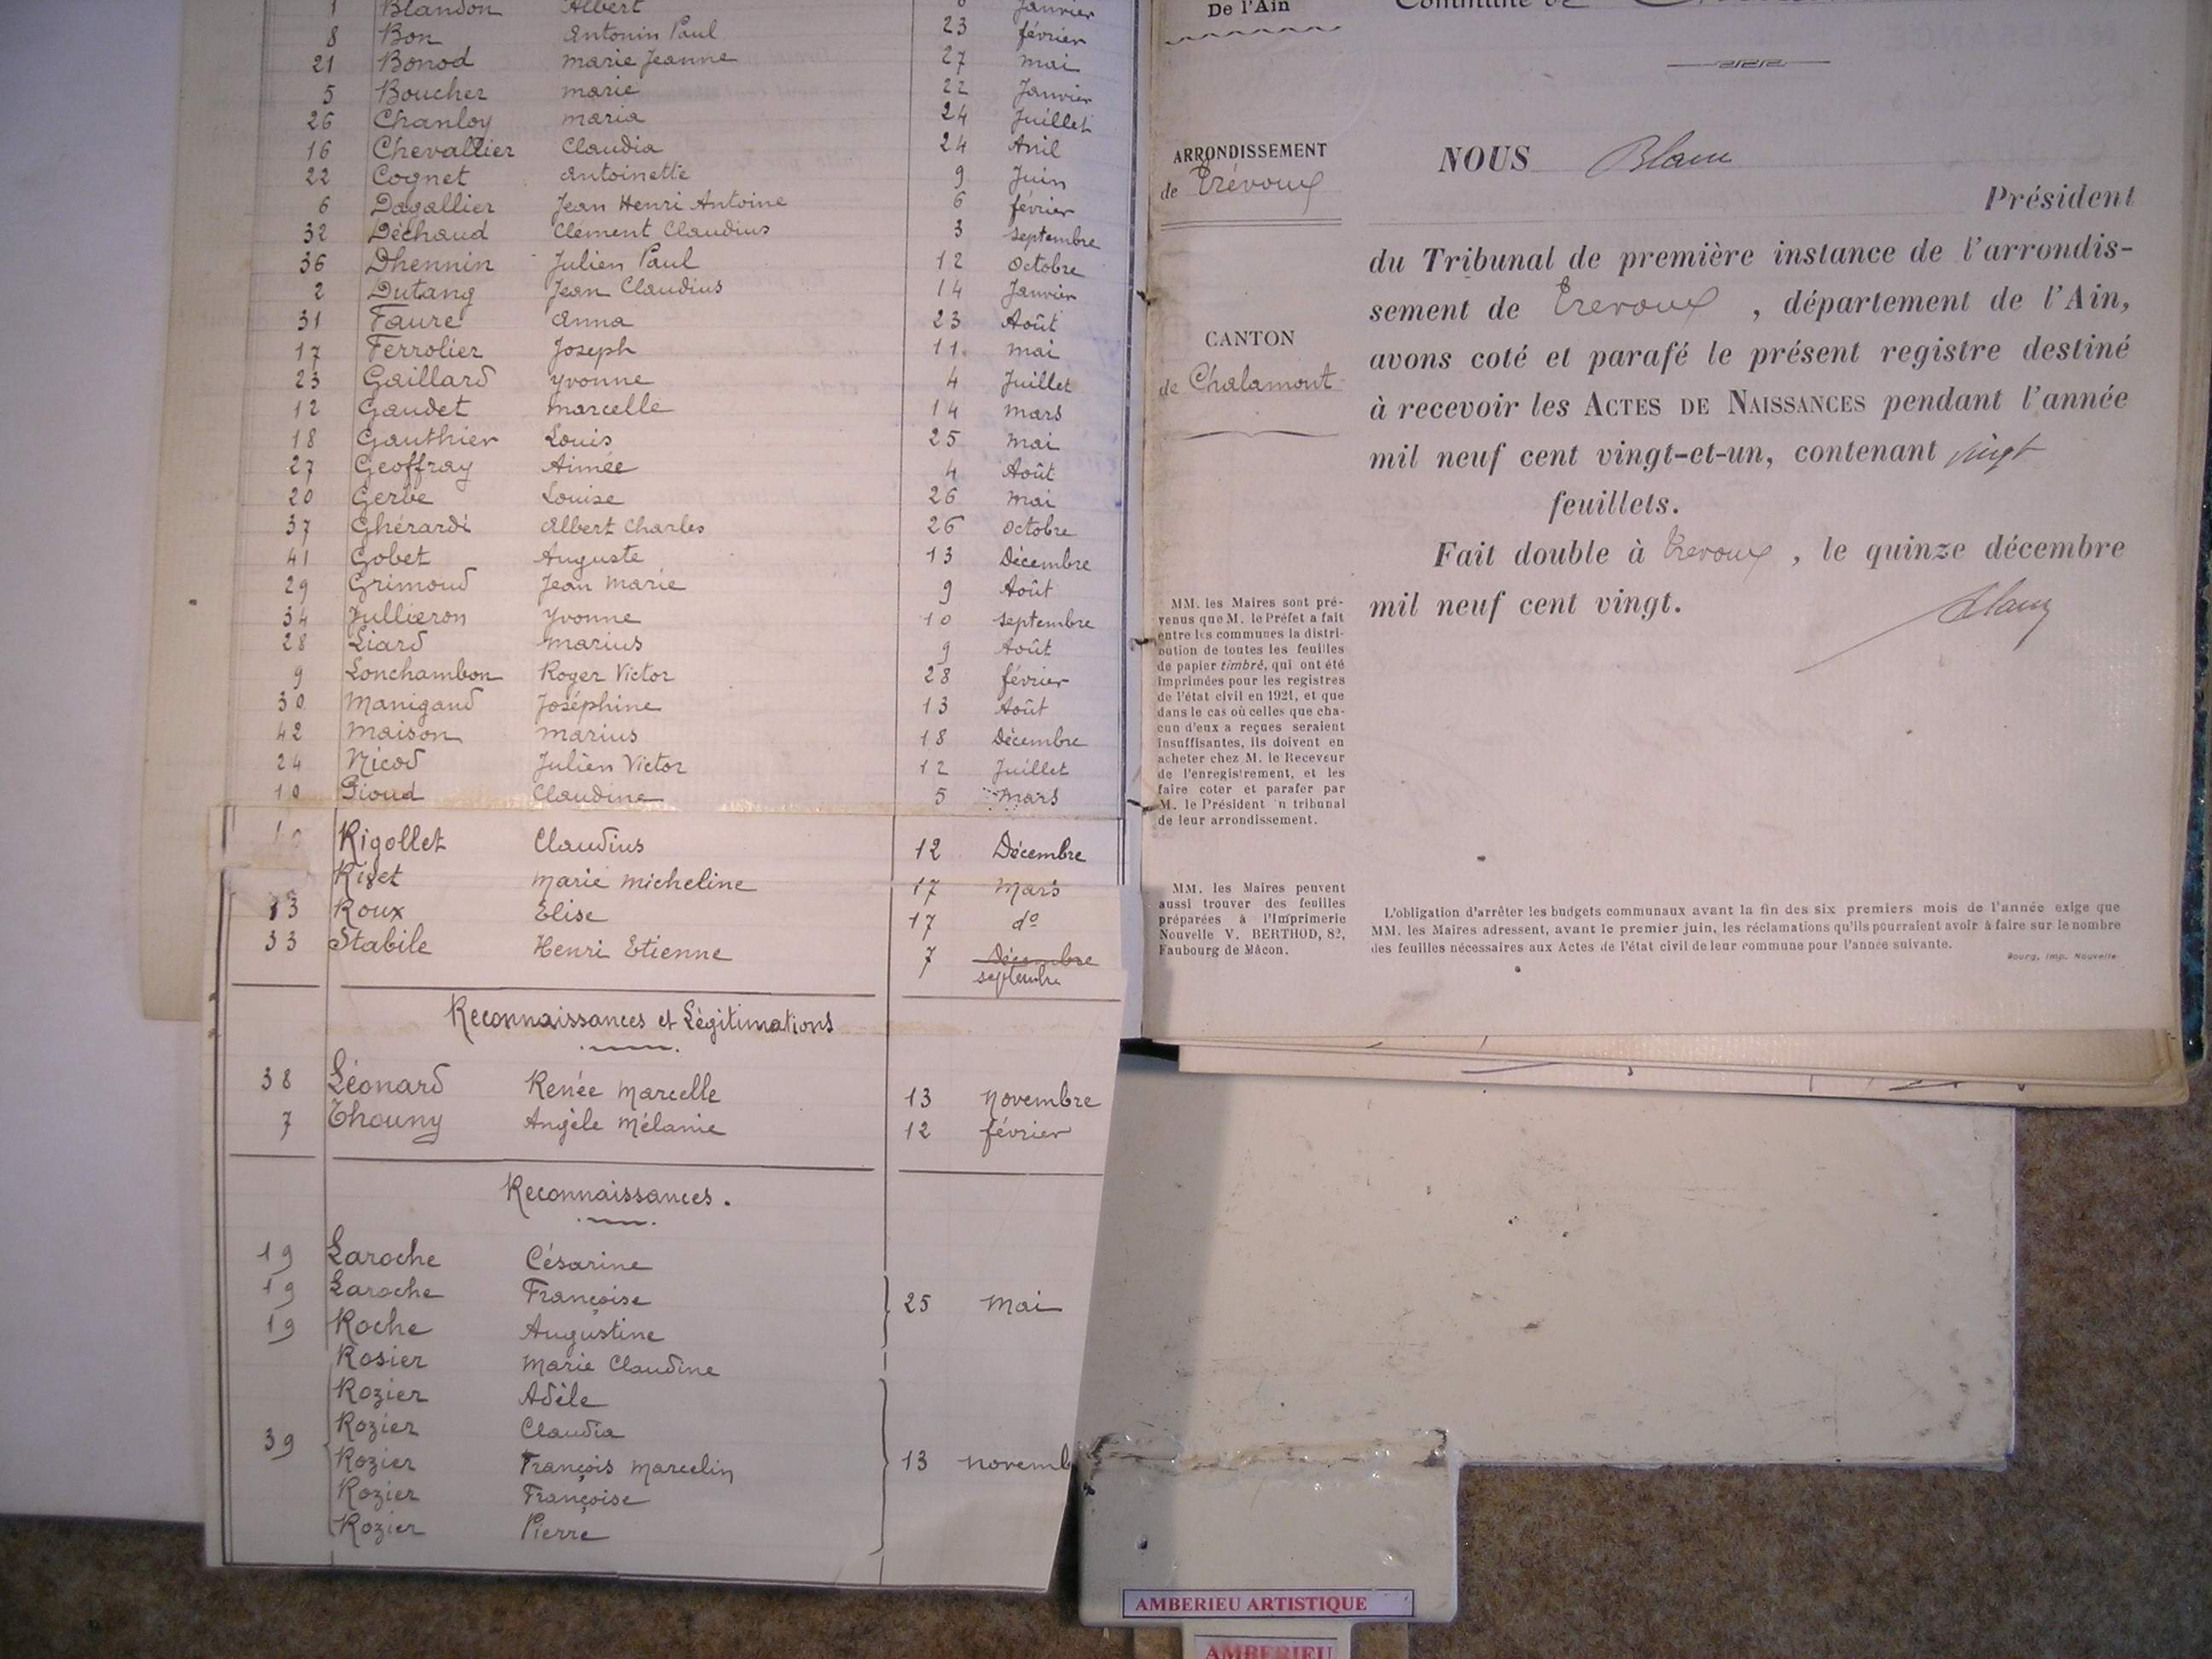 1 Blandon Albert 8 Janvier
8 Bon Antonin Paul 23 février
21 Bonod marie Jeanne 27 mai
5 Boucher marie 22 Janvier
26 Chanloy maria 24 Juillet
16 Chevallier Claudia 24 Avril
22 Cognet Antoinette 9 Juin
6 Dagallier Jean Henri Antoine 6 février
32 Déchaud Clément Claudius 3 septembre
36 Dhennin Julien Paul 12 Octobre
2 Dutang Jean Claudius 14 Janvier
31 Faure Anna 23 Août
17 Ferrolier Joseph 11 mai
23 Gaillard Yvonne 4 Juillet
12 Gaudet marcelle 14 mars
18 Gauthier Louis 25 mai
27 Geoffray Aimée 4 Août
20 Gerbe Louise 26 mai
37 Ghérardi Albert Charles 26 octobre
41 Gobet Auguste 13 Décembre
29 Grimoud Jean Marie 9 Août
34 Jullieron Yvonne 10 septembre
28 Liard marius 9 Août
9 Lonchambon Roger Victor 28 février
30 Manigaud Joséphine 13 Août
42 Maison marius 18 Décembre
24 Nicod Julien Victor 12 Juillet
10 Pioud Claudine 5 mars
Rigollet Claudius 12 Décembre
Rizet Marie Micheline 17 Mars
13 Roux Elise 17 dº
33 Stabile Henri Etienne 7 Décembre
septembre
Reconnaissances et Légitimations
38 Léonard Renée Marcelle 13 Novembre
7 Thouny Angèle Mélanie 12 février
Reconnaissances.
19 Laroche Césarine
19 Laroche Françoise 25 Mai
19 Roche Augustine
Rosier Marie Claudine
Rozier Adèle
Rozier Claudia
39 Rozier François Marcelin 13 novemb
Rozier Françoise
Rozier Pierre
De l'Ain
ARRONDISSEMENT
de Trévoux
CANTON
de Chalamont
MM. les Maires sont pré-
venus que M. le Préfet a fait
entre les communes la distri-
bution de toutes les feuilles
de papier timbré, qui ont été
imprimées pour les registres
de l'état civil en 1921, et que
dans le cas où celles que cha-
cun d'eux a reçues seraient
insuffisantes, ils doivent en
acheter chez M. le Receveur
de l'enregistrement, et les
faire coter et parafer par
M. le Président n tribunal
de leur arrondissement.
MM. les Maires peuvent
aussi trouver des feuilles
préparées à l'Imprimerie
Nouvelle V. BERTHOD, 82,
Faubourg de Mâcon.
Commune de
NOUS Blanc
Président
du Tribunal de première instance de l'arrondis-
sement de Trevoux, département de l'Ain,
avons coté et parafé le présent registre destiné
à recevoir les ACTES DE NAISSANCES pendant l'année
mil neuf cent vingt-et-un, contenant vingt
feuillets.
Fait double à Trevoux, le quinze décembre
mil neuf cent vingt.
Blanc
L'obligation d'arrêter les budgets communaux avant la fin des six premiers mois de l'année exige que
MM. les Maires adressent, avant le premier juin, les réclamations qu'ils pourraient avoir à faire sur le nombre
des feuilles nécessaires aux Actes de l'état civil de leur commune pour l'année suivante.
Bourg, Imp. Nouvelle
AMBERIEU ARTISTIQUE
AMBERIEU